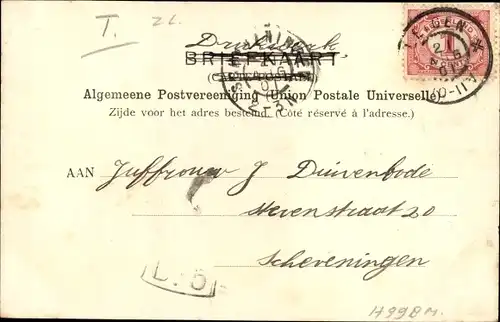 T. 2L.
Drukwerk
BRIEFKAART
Algemeene Postvereeniging (Union Postale Universelle)
Zijde voor het adres bestemd. (Côté réservé à l'adresse.)
AAN Juffrouw J Duivenbode
Stevenstraat 20
Scheveningen
L. 5
H998M.